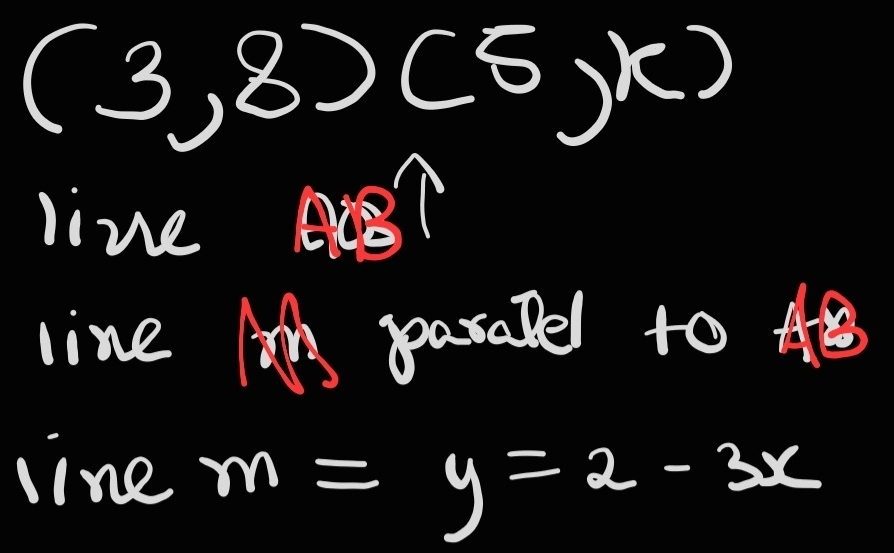 (3,8) (5,k)
line AB ↑
line M parallel to AB
line m = y = 2 - 3x